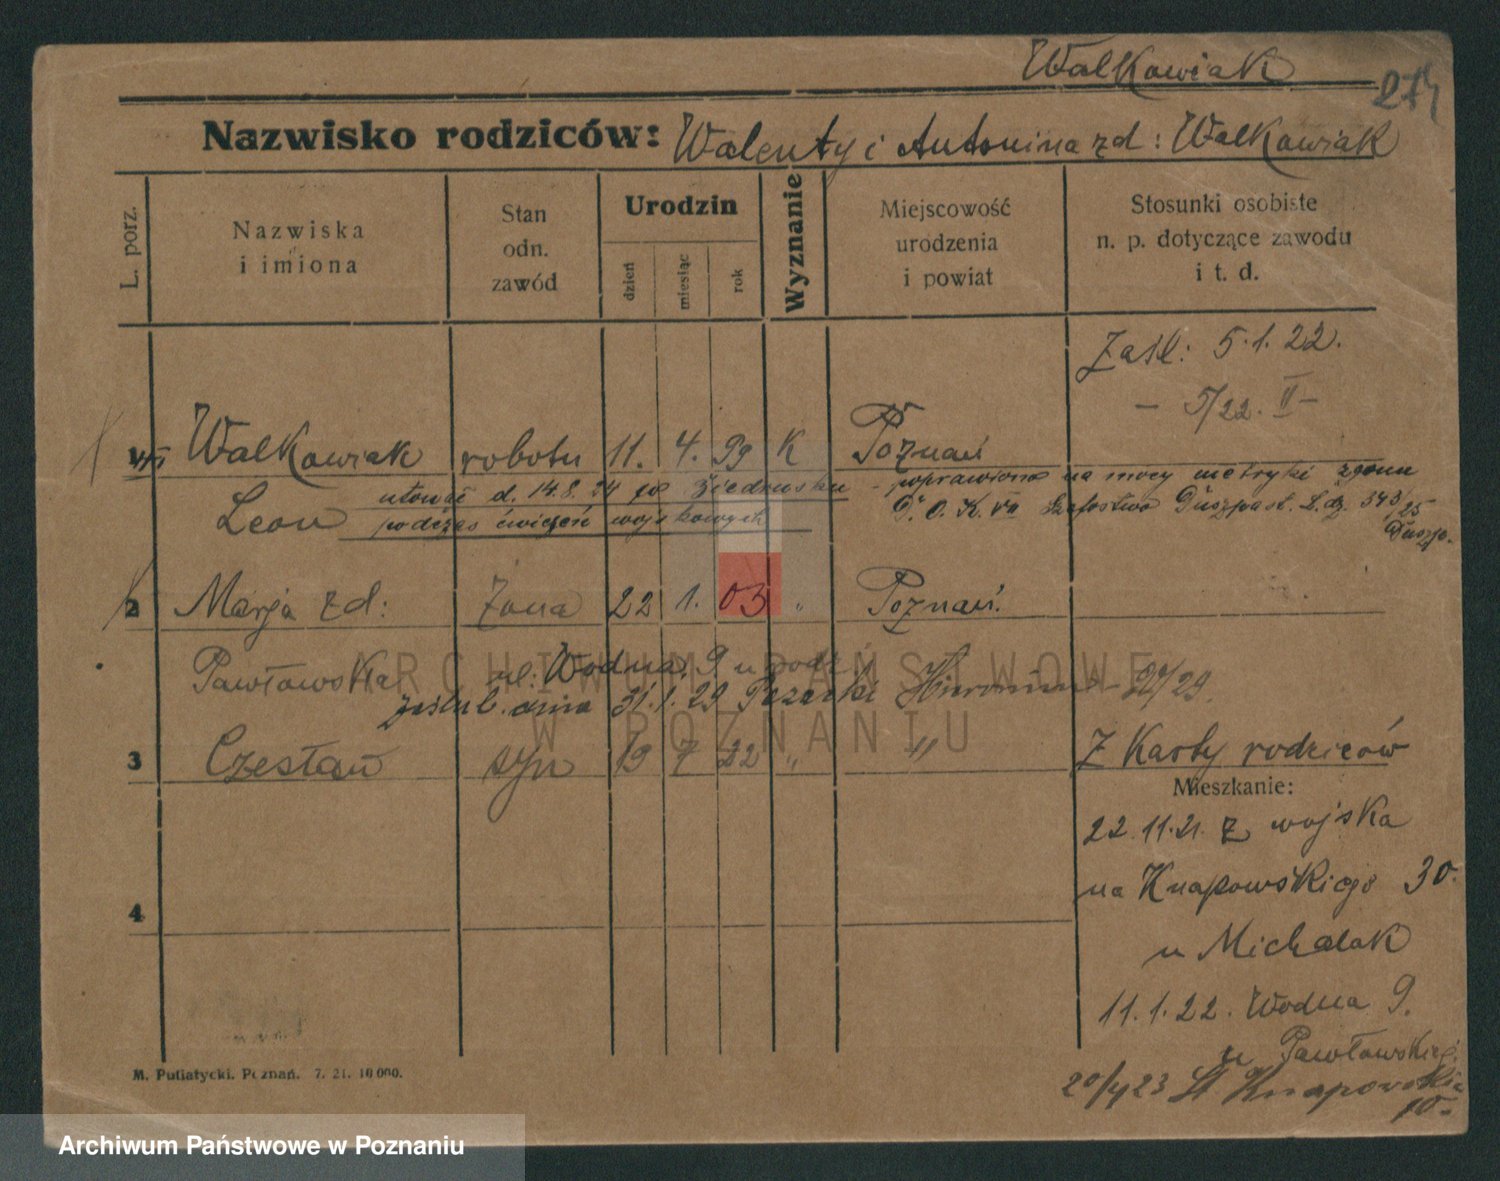 Walkowiak
274
Nazwisko rodziców: Walenty i Antonina zd: Walkowiak
L. porz.
Nazwiska i imiona
Stan odn. zawód
Urodzin
dzień
miesiąc
rok
Wyznanie
Miejscowość urodzenia i powiat
Stosunki osobiste n. p. dotyczące zawodu i t. d.
Zaśl: 5.1.22.
- 5/22. II -
1 Walkowiak robotn 11. 4. 99 K Poznań
utonął d. 14.8.24 w Biedrusku - poprawiono na mocy metryki zgonu
Leon podczas ćwiczeń wojskowych
D.O.K. VII Szefostwo Duszpast. L.dz. 343/25
Duszp.
2 Marja zd: żona 22 1. 03 " Poznań.
Pawłowska ul: Wodna 9 u rodz:
zaślub. dnia 31.1.29 Hieronim 92/29.
3 Czesław syn 19 7 22 " " Z Karty rodziców
Mieszkanie:
22.11.21. z wojska
na Knapowskiego 30.
u Michalak
4
11.1.22. Wodna 9.
u Pawłowskiej.
20/4 23 Knapowskie
10-
M. Putiatycki. Poznań. 7. 21. 10 000.
ARCHIWUM PAŃSTWOWE
W POZNANIU
Archiwum Państwowe w Poznaniu